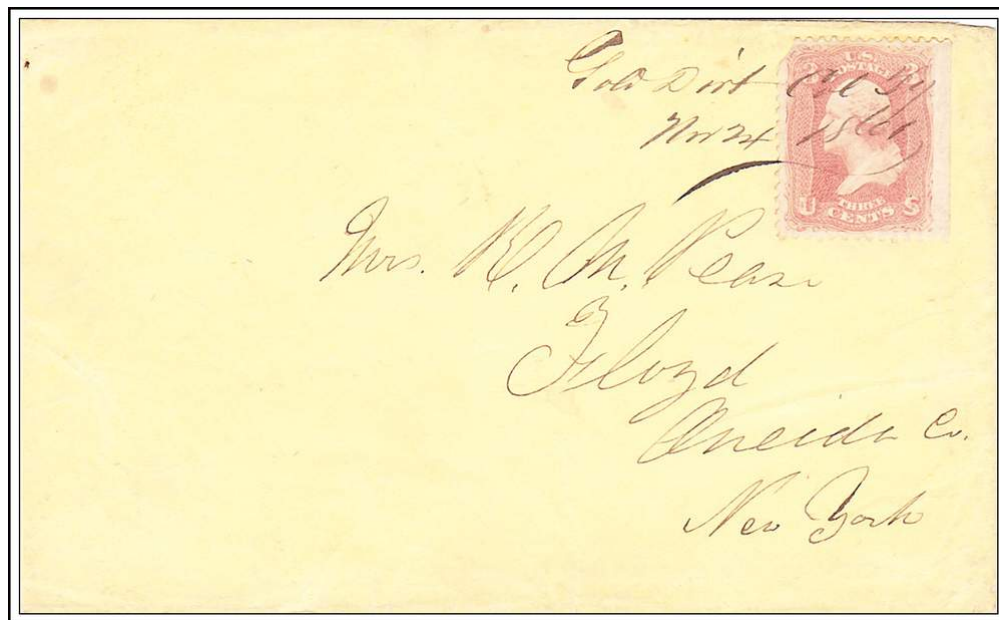 Gold Dirt Col Ty
Nov 24 1861
3 U.S. 3
POSTAGE
U THREE S
CENTS
Mrs. R. M. Pease
Floyd
Oneida Co.
New York